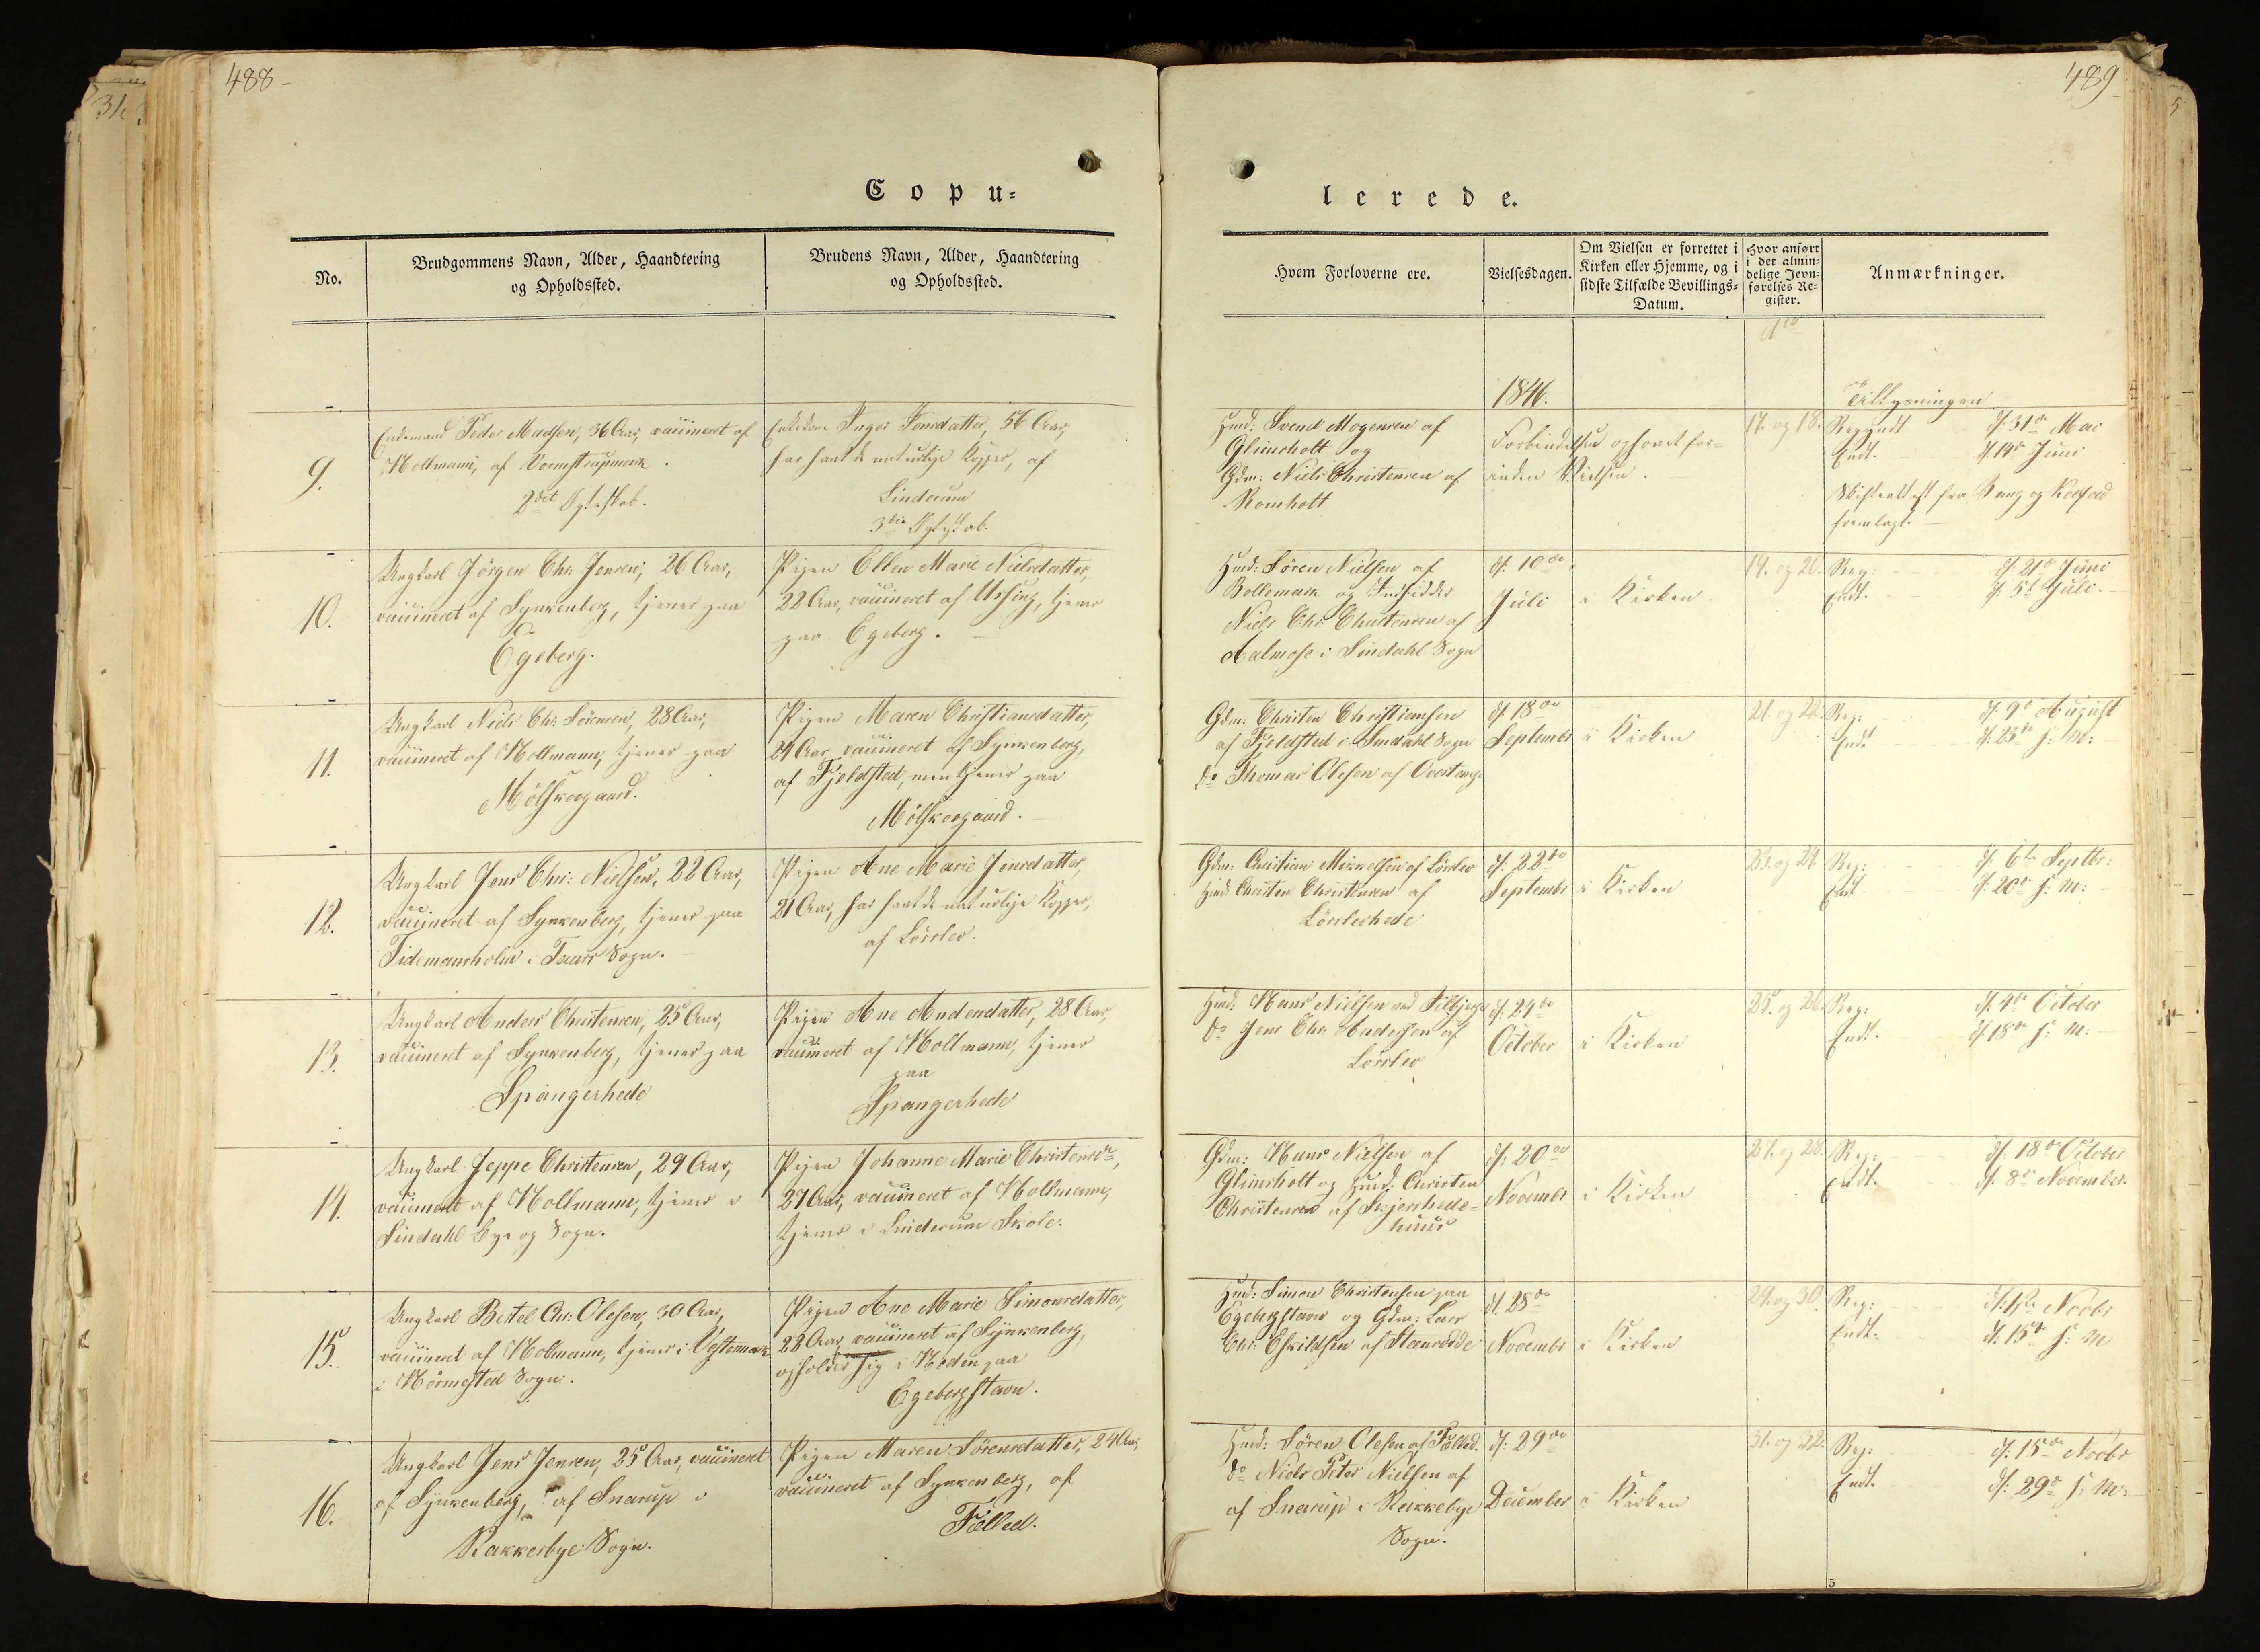 488-
Copu-
No.
Brudgommens Navn, Alder, Haandtering
og Opholdssted.
Brudens Navn, Alder, Haandtering
og Opholdssted.
9.
Enkemand Peder Madsen, 36 Aar, vaccineret af
Hollmann, af Wormstrupmark.
2det Ægteskab.
Enkekone Inger Jensdatter, 56 Aar,
har havt de naturlige Kopper, af
Linderum
3die Ægteskab.
10.
Ungkarl Jörgen Chr. Jensen, 26 Aar,
vaccineret af Synkenberg, tjener paa
Egeberg.
Pigen Ellen Marie Nielsdatter,
22 Aar, vaccineret af Ussing, tjener
paa Egeberg.
11.
Ungkarl Niels Chr. Sörensen, 28 Aar,
vaccineret af Hollmann, tjener paa
Mölskovgaard.
Pigen Maren Christiansdatter,
24 Aar, vaccineret af Synkenberg,
af Fjeldsted, men tjener paa
Mölskovgaard.
12.
Ungkarl Jens Chr: Nielsen, 22 Aar,
vaccineret af Synkenberg, tjener paa
Tidemansholm i Taars Sogn.
Pigen Ane Marie Jensdatter,
21 Aar, har havt de naturlige Kopper,
af Lörslev.
13.
Ungkarl Anders Christensen, 25 Aar,
vaccineret af Synkenberg, tjener paa
Spangerhede
Pigen Ane Andersdatter, 28 Aar,
vaccineret af Hollmann, tjener
paa
Spangerhede
14.
Ungkarl Jeppe Christensen, 29 Aar,
vaccineret af Hollmann, tjener i
Sindahl Bye og Sogn.
Pigen Johanne Marie Christensdr,
27 Aar, vaccineret af Hollmann,
tjener i Linderum Skole.
15.
Ungkarl Bertel Chr. Olesen, 30 Aar,
vaccineret af Holmann, tjener i Vestermark
i Hörmested Sogn.
Pigen Ane Marie Simonsdatter,
28 Aar, vaccineret af Synkenberg,
opholder sig i Heden paa
Egebergstavn.
16.
Ungkarl Jens Jensen, 25 Aar, vaccineret
af Synkenberg, af Snarup i
Rakkerbye Sogn.
Pigen Maren Sörensdatter, 24 Aar,
vaccineret af Synkenberg, af
Fælled.
489
lerede.
Hvem Forloverne ere.
Vielsesdagen.
Om Vielsen er forrettet i
Kirken eller Hjemme, og i
sidste Tilfælde Bevillings-
Datum.
Hvor anført
i det almin-
delige Jevn-
førelses Re-
gister.
Anmærkninger.
1846.
Tillysningen
Huusmd: Svend Mogensen af
Glimsholt og
Gdm: Niels Christensen af
Romholt
Forbindelsen ophævet for-
inden Vielsen.
17. og 18.
Begyndt d. 31te Mai
Endt. d. 14de Juni
Skifteattest fra
fremlagt.
Huusmd: Sören Nielsen af
Bollemark og Indsidder
Niels Chr: Christensen af
Aalmose i Sindahl Sogn
d. 10de
Juli
i Kirken
19. og 20.
Beg: d. 21de Juni
Endt. d. 5te Juli.
Gdm: Christen Christiansen
af Fjeldsted i Sindahl Sogn
do Thomas Olesen af
d. 18de
Septembr
i Kirken
21. og 22.
Beg: d. 9de August
Endt d. 23de s: M:
Gdm: Christian Mikkelsen af Lörslev
Hmd Christen Christensen af
Lörslevhede
d. 22de
Septembr
i Kirken
23. og 24.
Beg: d. 6te Septbr:
Endt d. 20de s: M:
Hmd: Hans Nielsen ved
Do Jens Chr. Andersen af
Lörslev
d. 24de
October
i Kirken
25. og 26.
Beg: d. 4de October
Endt. d. 18de s: M:
Gdm: Hans Nielsen af
Glimsholt og Hmd: Christen
Christensen af Skjershede-
huus
d. 20de
Novembr
i Kirken
27. og 28.
Beg: d. 18de October
Endt. d. 8de November.
Hmd: Simon Christensen paa
Egebergstavn og Gdm: Lars
Chr: Eskildsen af
d. 28de
Novembr
i Kirken
29. og 30.
Beg: d. 1ste Novbr
Endt. d. 15de s: M
Hmd: Sören Olesen af Fælled.
do Niels Peter Nielsen af
af Snarup i Rakkebye
Sogn.
d. 29de
December
i Kirken
31. og 32.
Beg: d. 15de Novbr
Endt. d. 29de s: M:
5